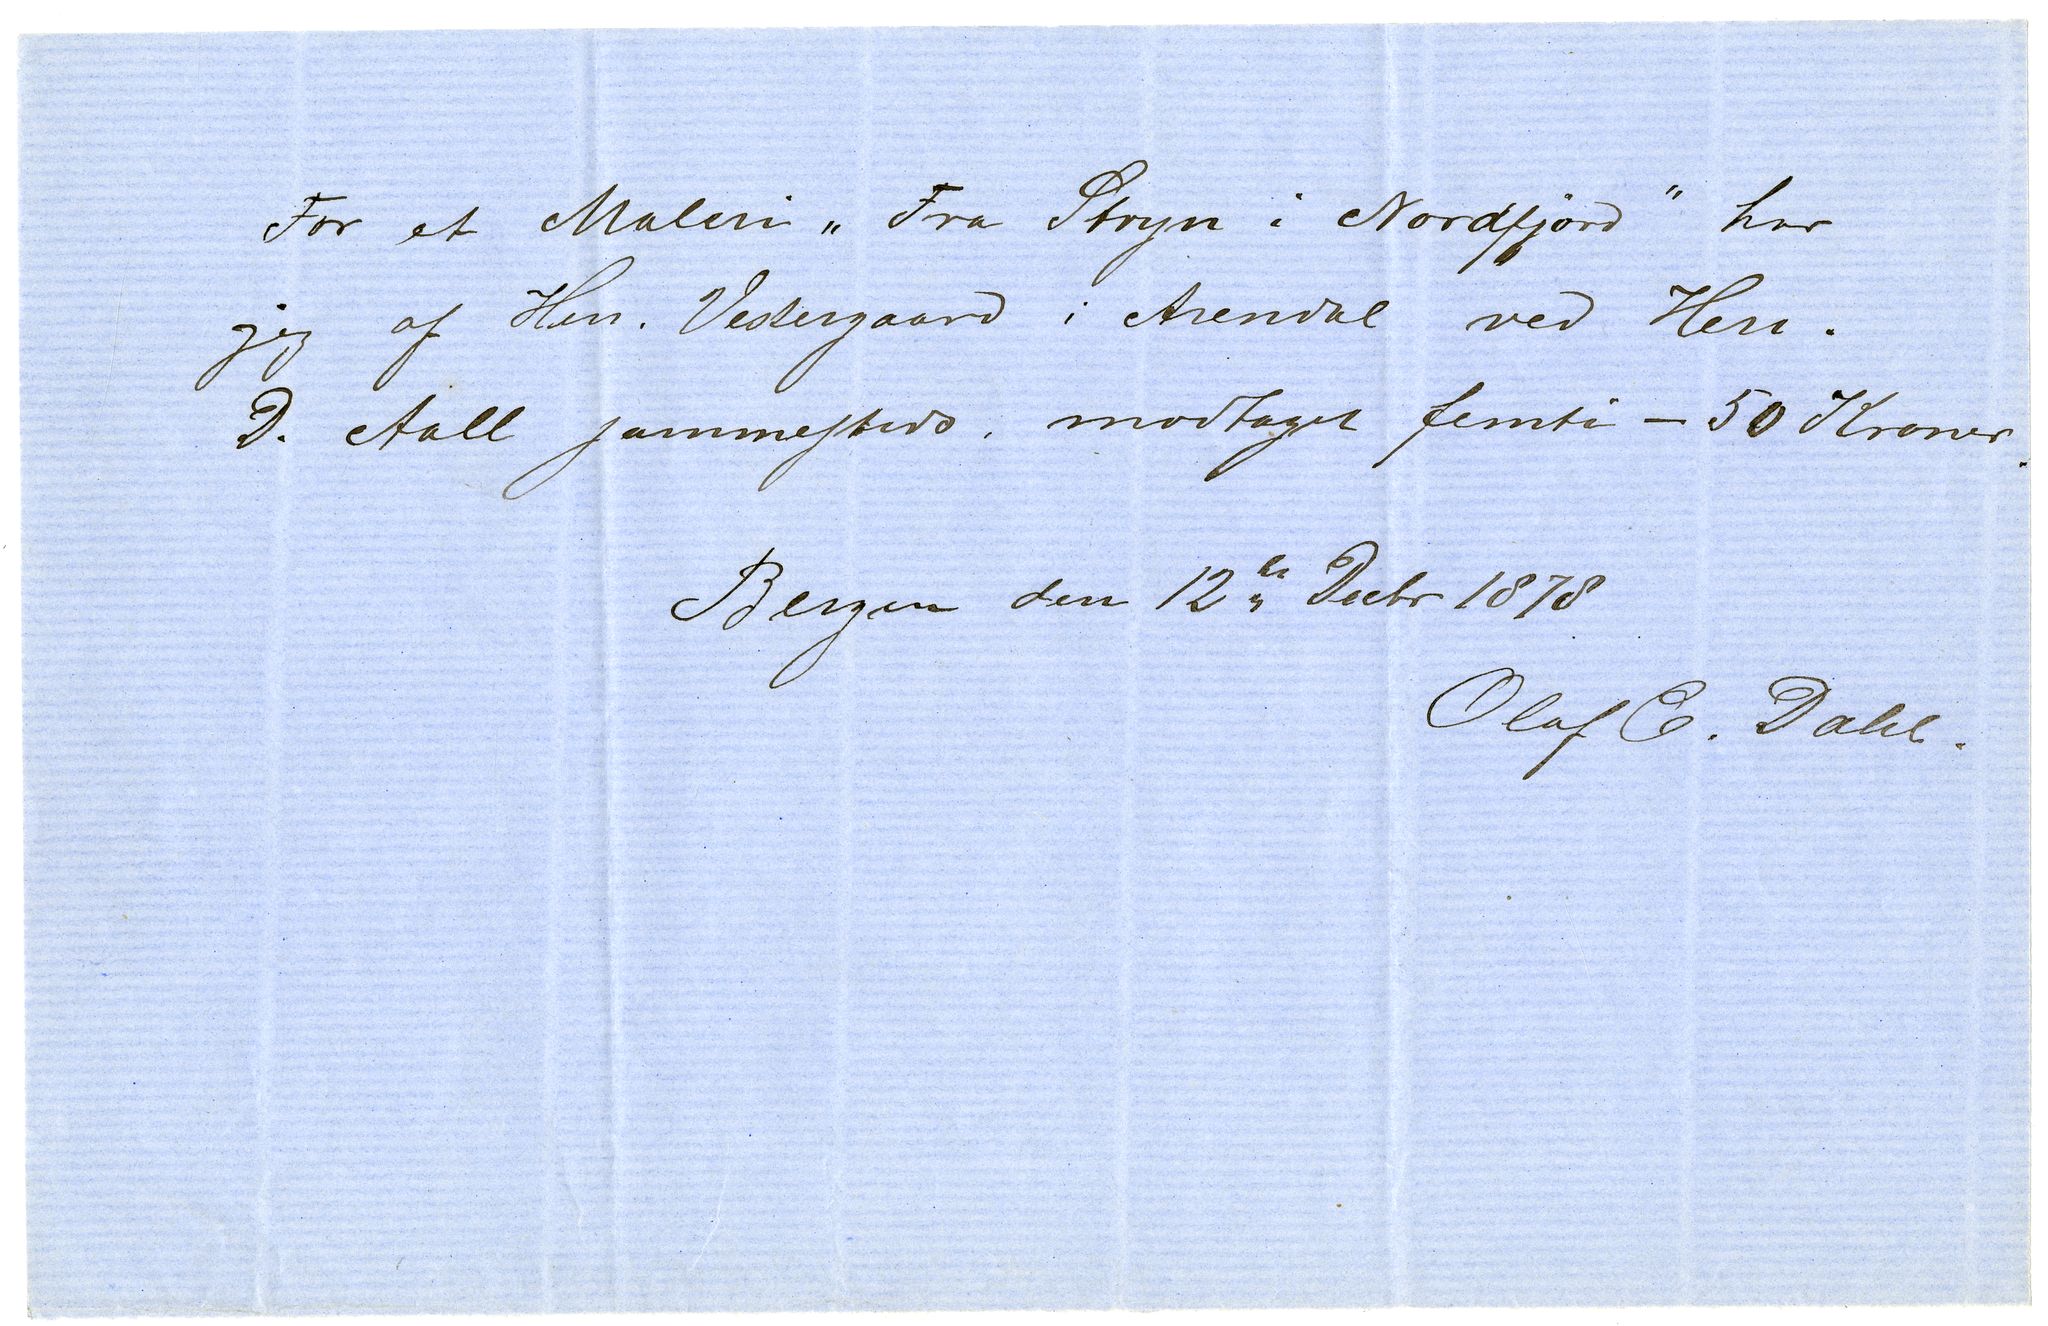 For et Maleri „ Fra Stryn i Nordfjord " har
jeg af Herr. Vestergaard i Arendal ved Herr.
D. Aall sammesteds, modtaget femti – 50 Kroner.
Bergen den 12te Decbr 1878
Olaf C. Dahl.